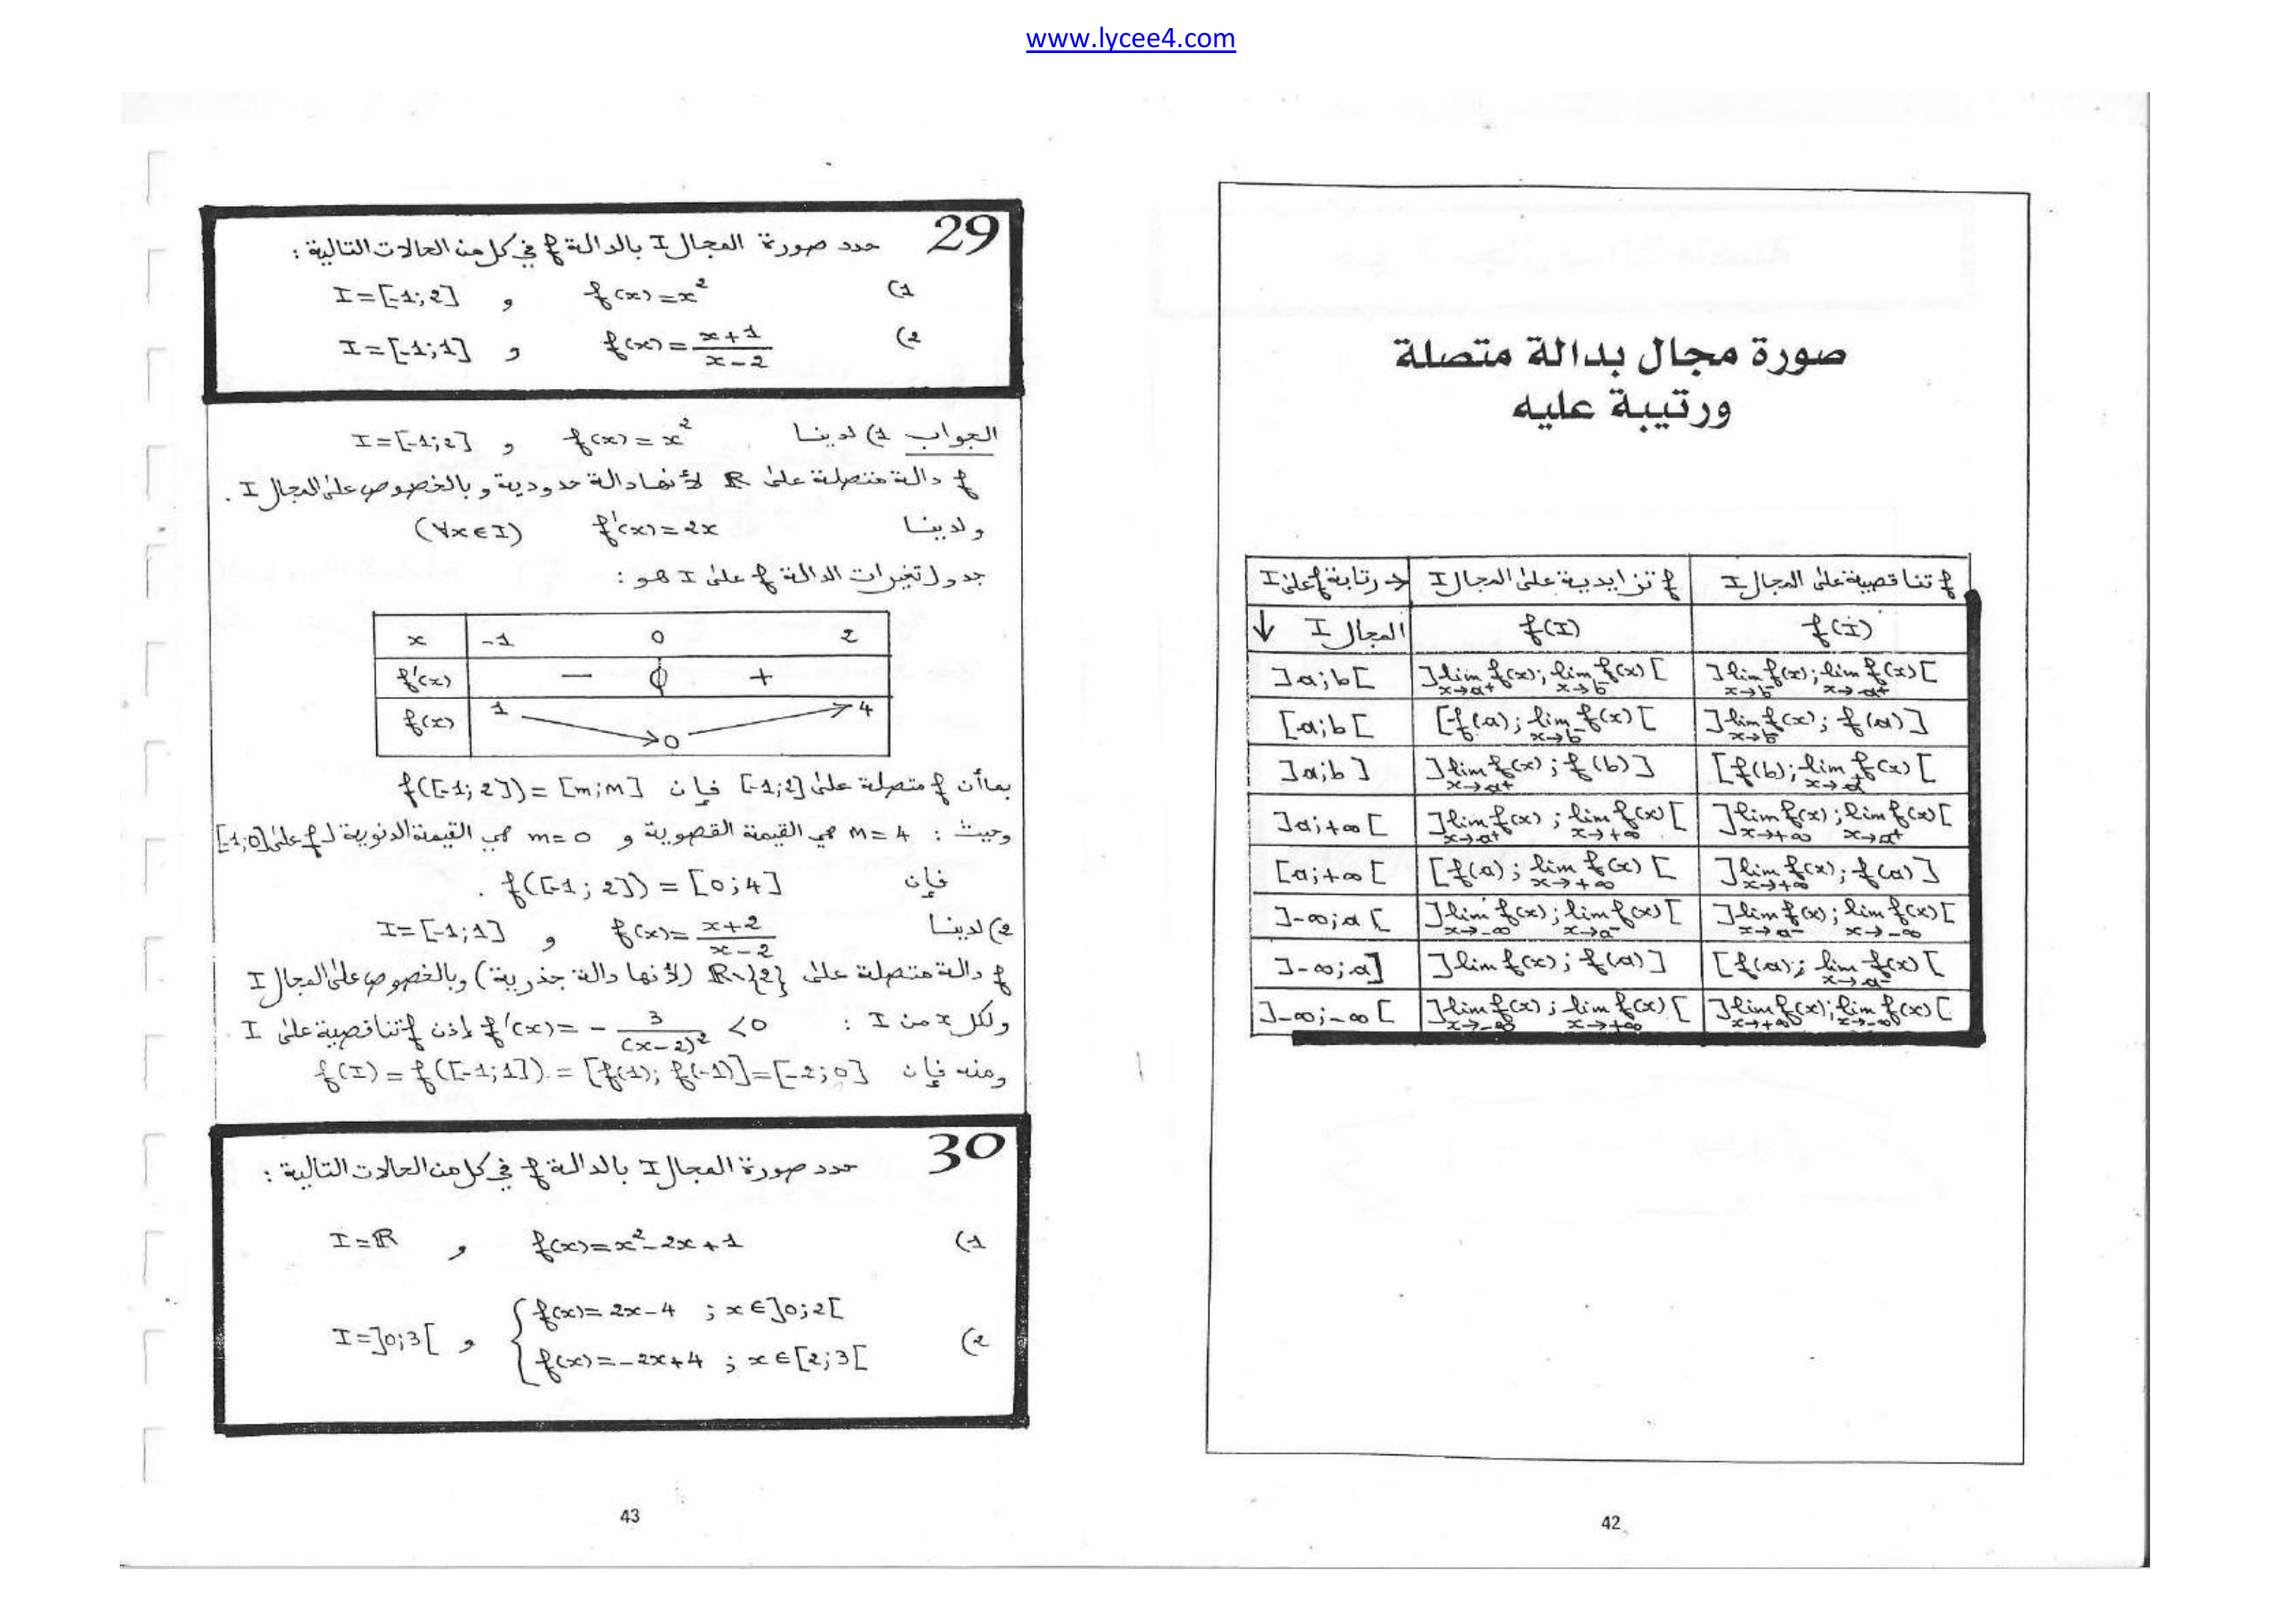 www.lycee4.com
صورة مجال بدالة متصلة
ورتيبة عليه
→ رتابة f على I | f تزايدية على المجال I | f تناقصية على المجال I
↓ المجال I | f(I) | f(I)
]a;b[ | ]lim f(x) x→a⁺ ; lim f(x) x→b⁻[ | ]lim f(x) x→b⁻ ; lim f(x) x→a⁺[
[a;b[ | [f(a) ; lim f(x) x→b⁻[ | ]lim f(x) x→b⁻ ; f(a)]
]a;b] | ]lim f(x) x→a⁺ ; f(b)] | [f(b) ; lim f(x) x→a⁺[
]a;+∞[ | ]lim f(x) x→a⁺ ; lim f(x) x→+∞[ | ]lim f(x) x→+∞ ; lim f(x) x→a⁺[
[a;+∞[ | [f(a) ; lim f(x) x→+∞[ | ]lim f(x) x→+∞ ; f(a)]
]-∞;a[ | ]lim f(x) x→-∞ ; lim f(x) x→a⁻[ | ]lim f(x) x→a⁻ ; lim f(x) x→-∞[
]-∞;a] | ]lim f(x) ; f(a)] | [f(a) ; lim f(x) x→a⁻[
]-∞;-∞[ | ]lim f(x) x→-∞ ; lim f(x) x→+∞[ | ]lim f(x) x→+∞ ; lim f(x) x→-∞[
42
29 حدد صورة المجال I بالدالة f في كل من الحالات التالية :
1) f(x)=x² و I=[-1;2]
2) f(x)=(x+1)/(x-2) و I=[-1;1]
الجواب 1) لدينا f(x)=x² و I=[-1;2]
f دالة متصلة على ℝ لأنها دالة حدودية وبالخصوص على المجال I .
ولدينا f'(x)=2x (∀x∈I)
جدول تغيرات الدالة f على I هو :
x | -1 0 2
f'(x) | − 0 +
f(x) | 1 0 4
بما أن f متصلة على [-1;2] فإن f([-1;2])=[m;M]
وحيث : M=4 هي القيمة القصوية و m=0 هي القيمة الدنوية لـ f على [-1;0]
فإن f([-1;2])=[0;4] .
2) لدينا f(x)=(x+2)/(x-2) و I=[-1;1]
f دالة متصلة على ℝ\{2} (لأنها دالة جذرية) وبالخصوص على المجال I
ولكل x من I : f'(x)=-3/(x-2)² <0 إذن f تناقصية على I
ومنه فإن f(I)=f([-1;1])=[f(1);f(-1)]=[-2;0]
30 حدد صورة المجال I بالدالة f في كل من الحالات التالية :
1) f(x)=x²-2x+1 و I=ℝ
2) { f(x)=2x-4 ; x∈]0;2[
f(x)=-2x+4 ; x∈[2;3[ و I=]0;3[
43